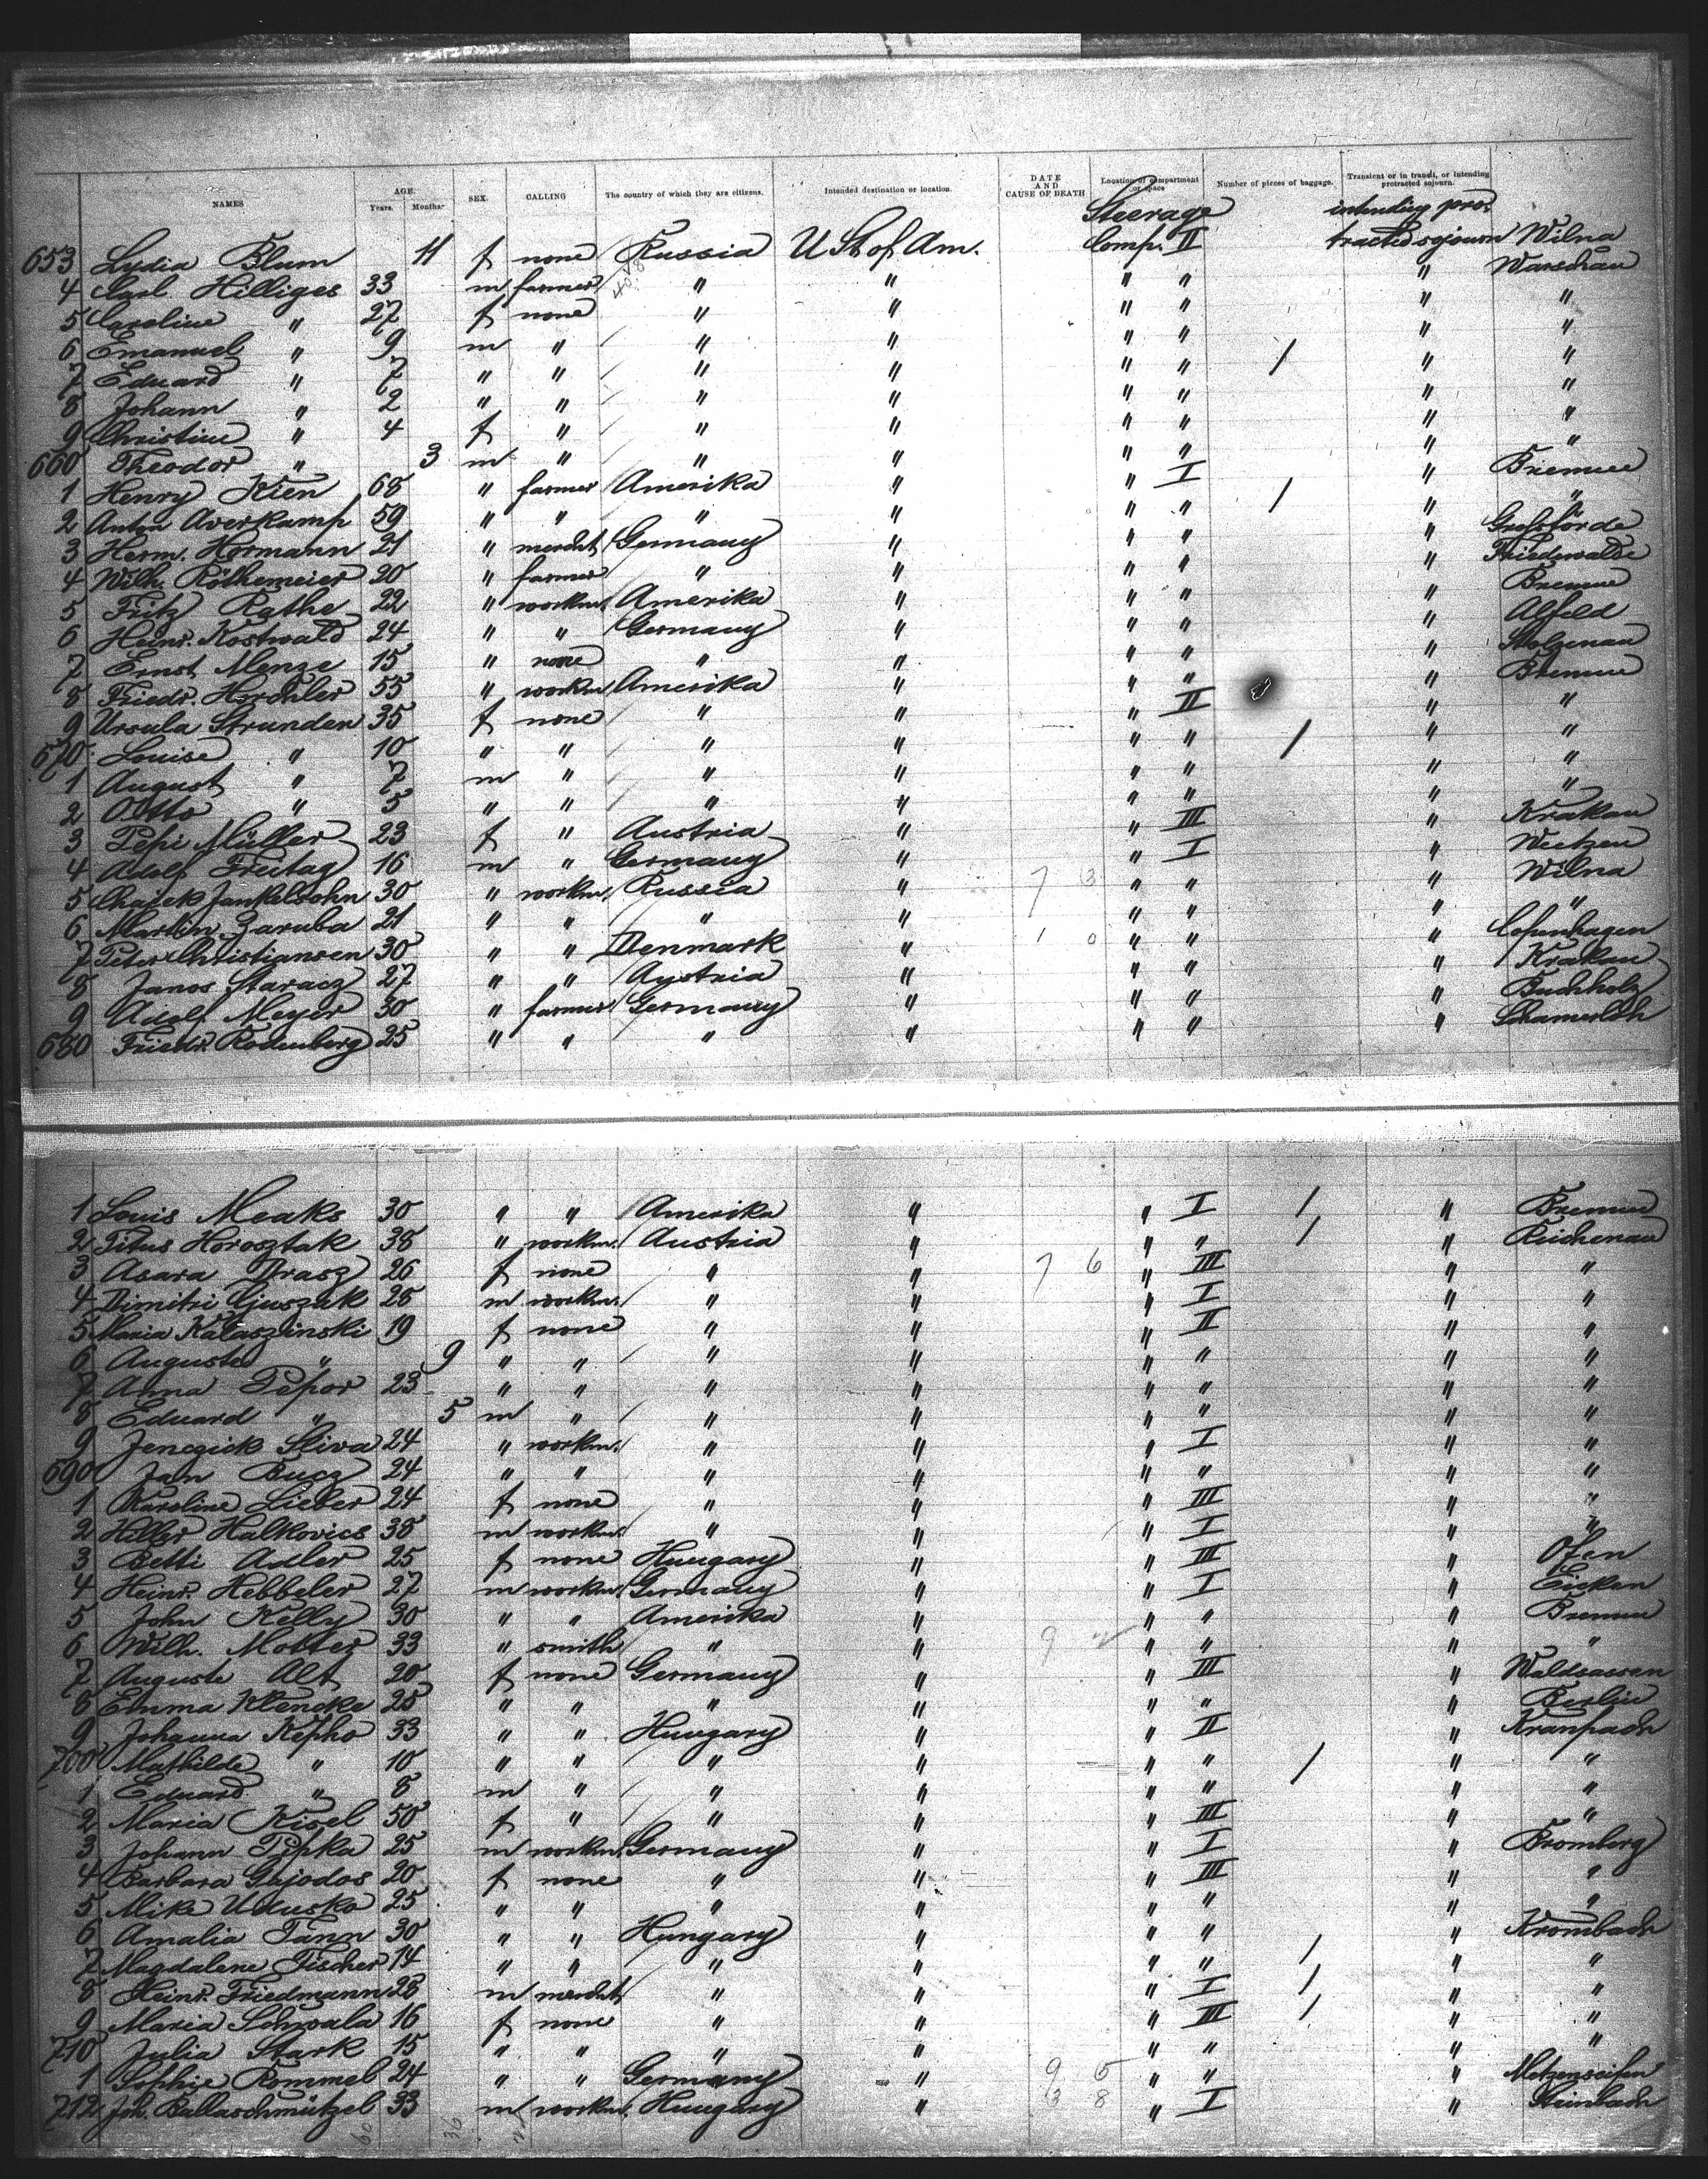 NAMES AGE. Years. Months. SEX. CALLING The country of which they are citizens. Intended destination or location. DATE AND CAUSE OF DEATH Location of compartment or space Number of pieces of baggage. Transient or in transit, or intending protracted sojourn.
Steerage intending pro-
653 Lydia Blum 11 f none Russia U St of Am. Comp. II tracted sojourn Wilna
4 Carl Hilliges 33 m farmer " " " " " Warschau
5 Caroline " 27 f none " " " " " "
6 Emanuel " 9 m " " " " " " "
7 Eduard " 7 " " " " " " 1 " "
8 Johann " 2 " " " " " " " "
9 Christine " 4 f " " " " " " "
660 Theodor " 3 m " " " " " " "
1 Henry Kien 68 " farmer Amerika " " I " Bremen
2 Anton Averkamp 59 " " " " " " 1 " "
3 Herm. Hormann 21 " mercht Germany " " " "
4 Wilh. Röthemeier 20 " farmer " " " " " Friedewalde
5 Fritz Rathe 22 " workm. Amerika " " " " Bremen
6 Heinr. Kostwald 24 " " Germany " " " " Alfeld
7 Ernst Menze 15 " none " " " " " Stolzenau
8 Friedr. Horchler 55 " workm Amerika " " " " Bremen
9 Ursula Strunden 35 f none " " " II " "
670 Louise " 10 " " " " " " 1 " "
1 August " 7 m " " " " " " "
2 Otto " 5 " " " " " " " "
3 Pepi Müller 23 f " Austria " " III " Krakau
4 Adolf Freitag 16 m " Germany " " I " Wietzen
5 Chajek Jankelsohn 30 " workm. Russia " 7 3 " " " Wilna
6 Martin Zaruba 21 " " " " " " " "
7 Peter Christiansen 30 " " Denmark " 1 0 " " " Copenhagen
8 Janos Staracz 27 " " Austria " " " " Krakau
9 Adolf Meyer 30 " farmer Germany " " " " Buchholz
680 Friedr. Rodenberg 25 " " " " " " "
1 Louis Meaks 30 " " Amerika " " I 1 " Bremen
2 Titus Horosztak 38 " workm. Austria " " " 1 " Reichenau
3 Asara Drasz 26 f none " " 7 6 " III " "
4 Dimitri Cjuszak 28 m workm. " " " I " "
5 Maria Kalaszlinski 19 f none " " " II " "
6 Auguste " 9 " " " " " " " "
7 Anna Pepor 23 " " " " " " " "
8 Eduard " 5 m " " " " " " "
9 Jenczick Sliva 24 " workm. " " " I " "
690 Jan Bucz 24 " " " " " " " "
1 Karoline Lieber 24 f none " " " III " "
2 Hiller Halkovics 38 m workm. " " " I " "
3 Betti Adler 25 f none Hungary " " III " Ofen
4 Heinr. Hebbeler 27 m workm. Germany " " I " Eicken
5 John Kelly 30 " " Amerika " " " " Bremen
6 Wilh. Motter 33 " smith " " 9 " " " "
7 Auguste Alt 20 f none Germany " " III " Waldsassen
8 Emma Klencke 25 " " " " " " " Berlin
9 Johanna Kepho 33 " " Hungary " " II "
700 Mathilde " 10 " " " " " " 1 " "
1 Eduard " 8 m " " " " " " "
2 Maria Kisel 50 f " " " " III " "
3 Johann Pipka 25 m workm. Germany " " I " Bromberg
4 Barbara Gajodos 20 f none " " " III " "
5 Mike Udusko 25 " " " " " " " "
6 Amalia Tann 30 " " Hungary " " " " Krombach
7 Magdalene Fischer 14 " " " " " " 1 " "
8 Heinr. Friedmann 28 m mercht " " " I 1 " "
9 Maria Schwala 16 f none " " " III 1 " "
710 Julia Stark 15 " " " " " " " "
1 Sophie Rommel 24 " " Germany " 9 5 " " " Metzenseifen
712 Joh. Ballaschmützel 33 m workm. Hungary " 3 8 " I " Steinbach